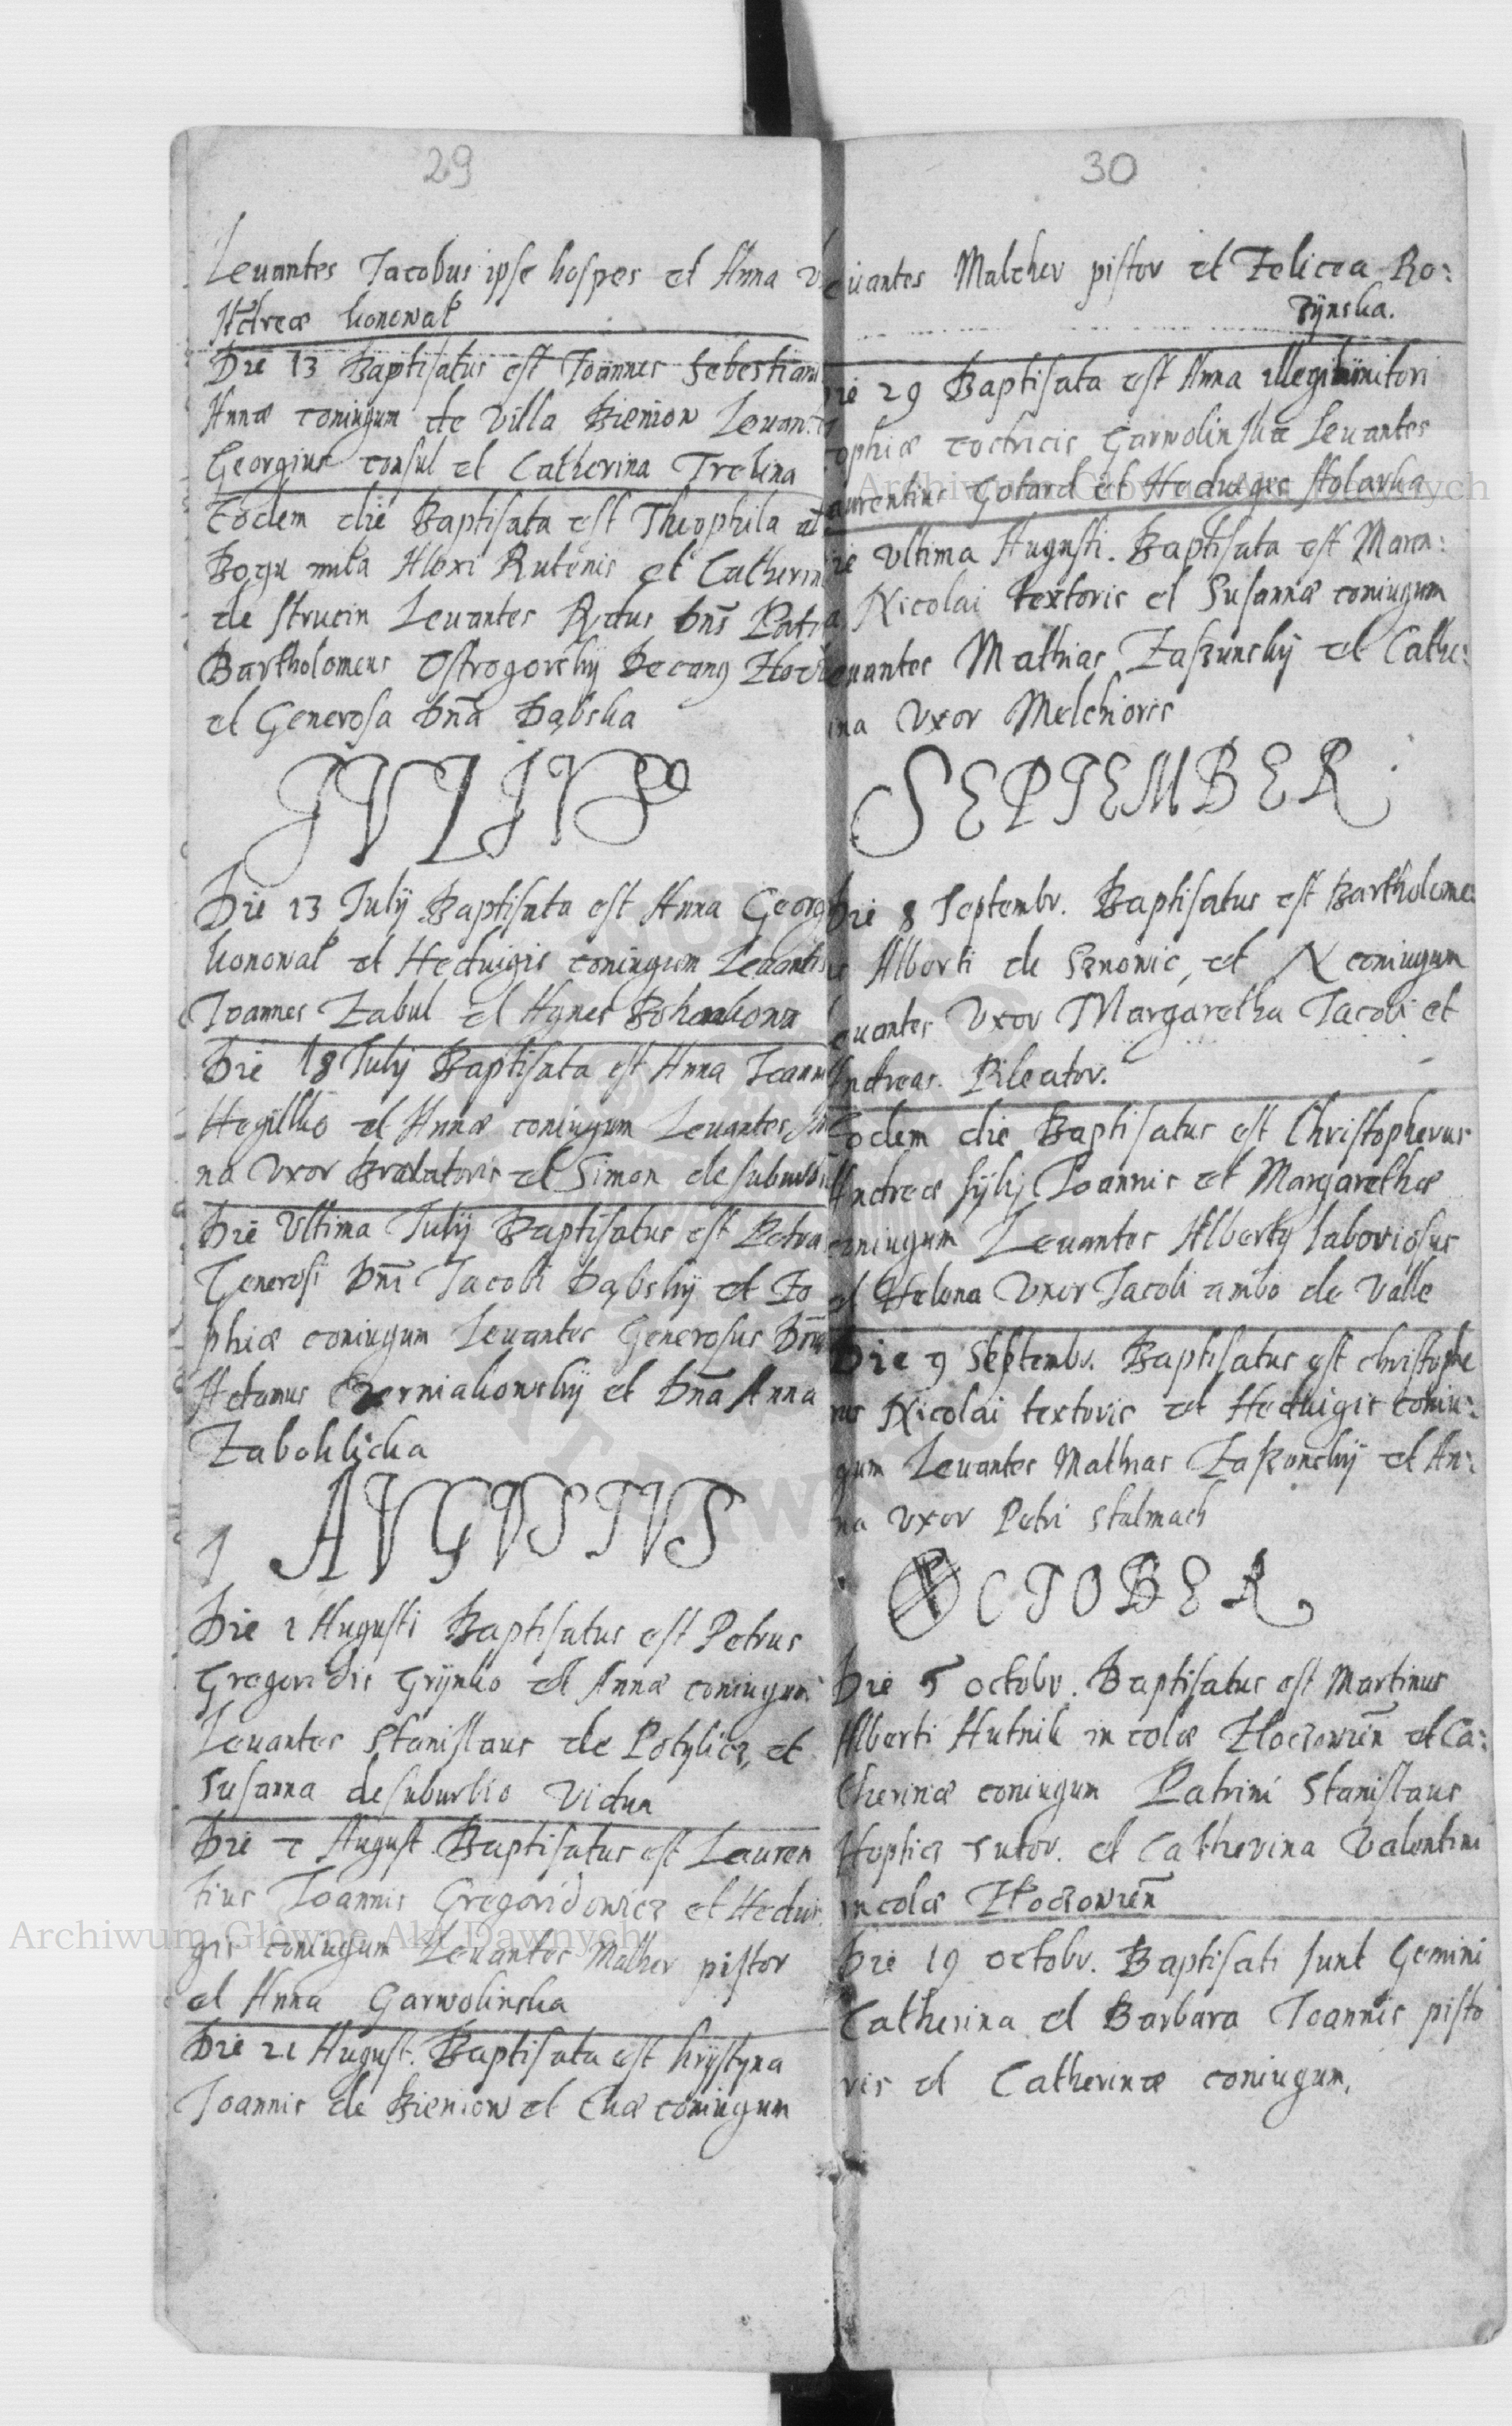 29
Leuantes Jacobus ipse hospes et Anna
Andreæ konował
Die 13 Baptisatus est Joannes Sebestiani
Annæ coniugum de Villa Bieniow Leuantes
Georgius consul et Catherina Trelina
Eodem die Baptisata est Theophila al
Bogu miła Alexi Rutenis et Catherin
de strucin Leuantes Rndus Dns Patr
Bartholomeus Ostrogorskij Decanus Zloc
et Generosa Dna Dąbska
JVLIVS
Die 13 Julij Baptisata est Anna Georg
konował et Heduigis coniugum Leuantes
Joannes Zabul et Agnes
Die 18 Julij Baptisata est Anna Joannis
et Annæ coniugum Leuantes
na Vxor Braxatoris et Simon de suburbio
Die Vltima Julij Baptisatus est Petrus
Generosi Dni Jacobi Dąbskij et Zo
phiæ coniugum Leuantes Generosus Dnus
Adamus Czerniakowskij et Dna Anna
Zaboklicka
1 AVGVSTVS
Die 1 Augusti Baptisatus est Petrus
Gregoridis Grijnko et Annæ coniugum
Leuantes Stanislaus de Potylicz et
Susanna de suburbio Vidua
Die August. Baptisatus est Lauren
tius Joannis Gregoridowicz et Hedui
gis coniugum Leuantes Malher pistor
et Anna Garwolinska
Die 21 August. Baptisata est krijstyna
Joannis de Bieniow et Euæ coniugum
30
euantes Malcher pistor et Felicea Ro:
zijnska.
Die 29 Baptisata est Anna illegitimi tori
ophiæ coctricis Garwolinskæ Leuantes
aurentius Gotard et Heduigis stolarka
ie Vltima Augusti. Baptisata est Maren:
a Nicolai textoris et Susannæ coniugum
euantes Mathias Zaszunskij et Cathe:
ina Vxor Melchioris
SEPTEMBER
Die 8 Septembr. Baptisatus est Bartholome:
us Alberti de Sznowic, et N coniugum
euantes Vxor Margaretha Jacobi et
Andreas Pileator.
Eodem die Baptisatus est Christopherus
Andreæ fijlij Joannis et Margarethæ
coniugum Leuantes Albertus laboriosus
et Helena Vxor Jacobi ambo de Valle
Die 9 Septembr. Baptisatus est christophe
rus Nicolai textoris et Heduigis coniu:
gum Leuantes Mathias Zaszonskij et An:
na Vxor Petri stalmach
OCTOBER
Die 5 octobr. Baptisatus est Martinus
Alberti Hutnik in colæ Złoczowien et Ca:
therinæ coniugum Patrini Stanislaus
Sutor. et Catherina Valentini
incolæ Złoczowien
Die 19 octobr. Baptisati sunt Gemini
Catherina et Barbara Joannis pisto
ris et Catherinæ coniugum.
Archiwum Główne Akt Dawnych
Archiwum Główne Akt Dawnych